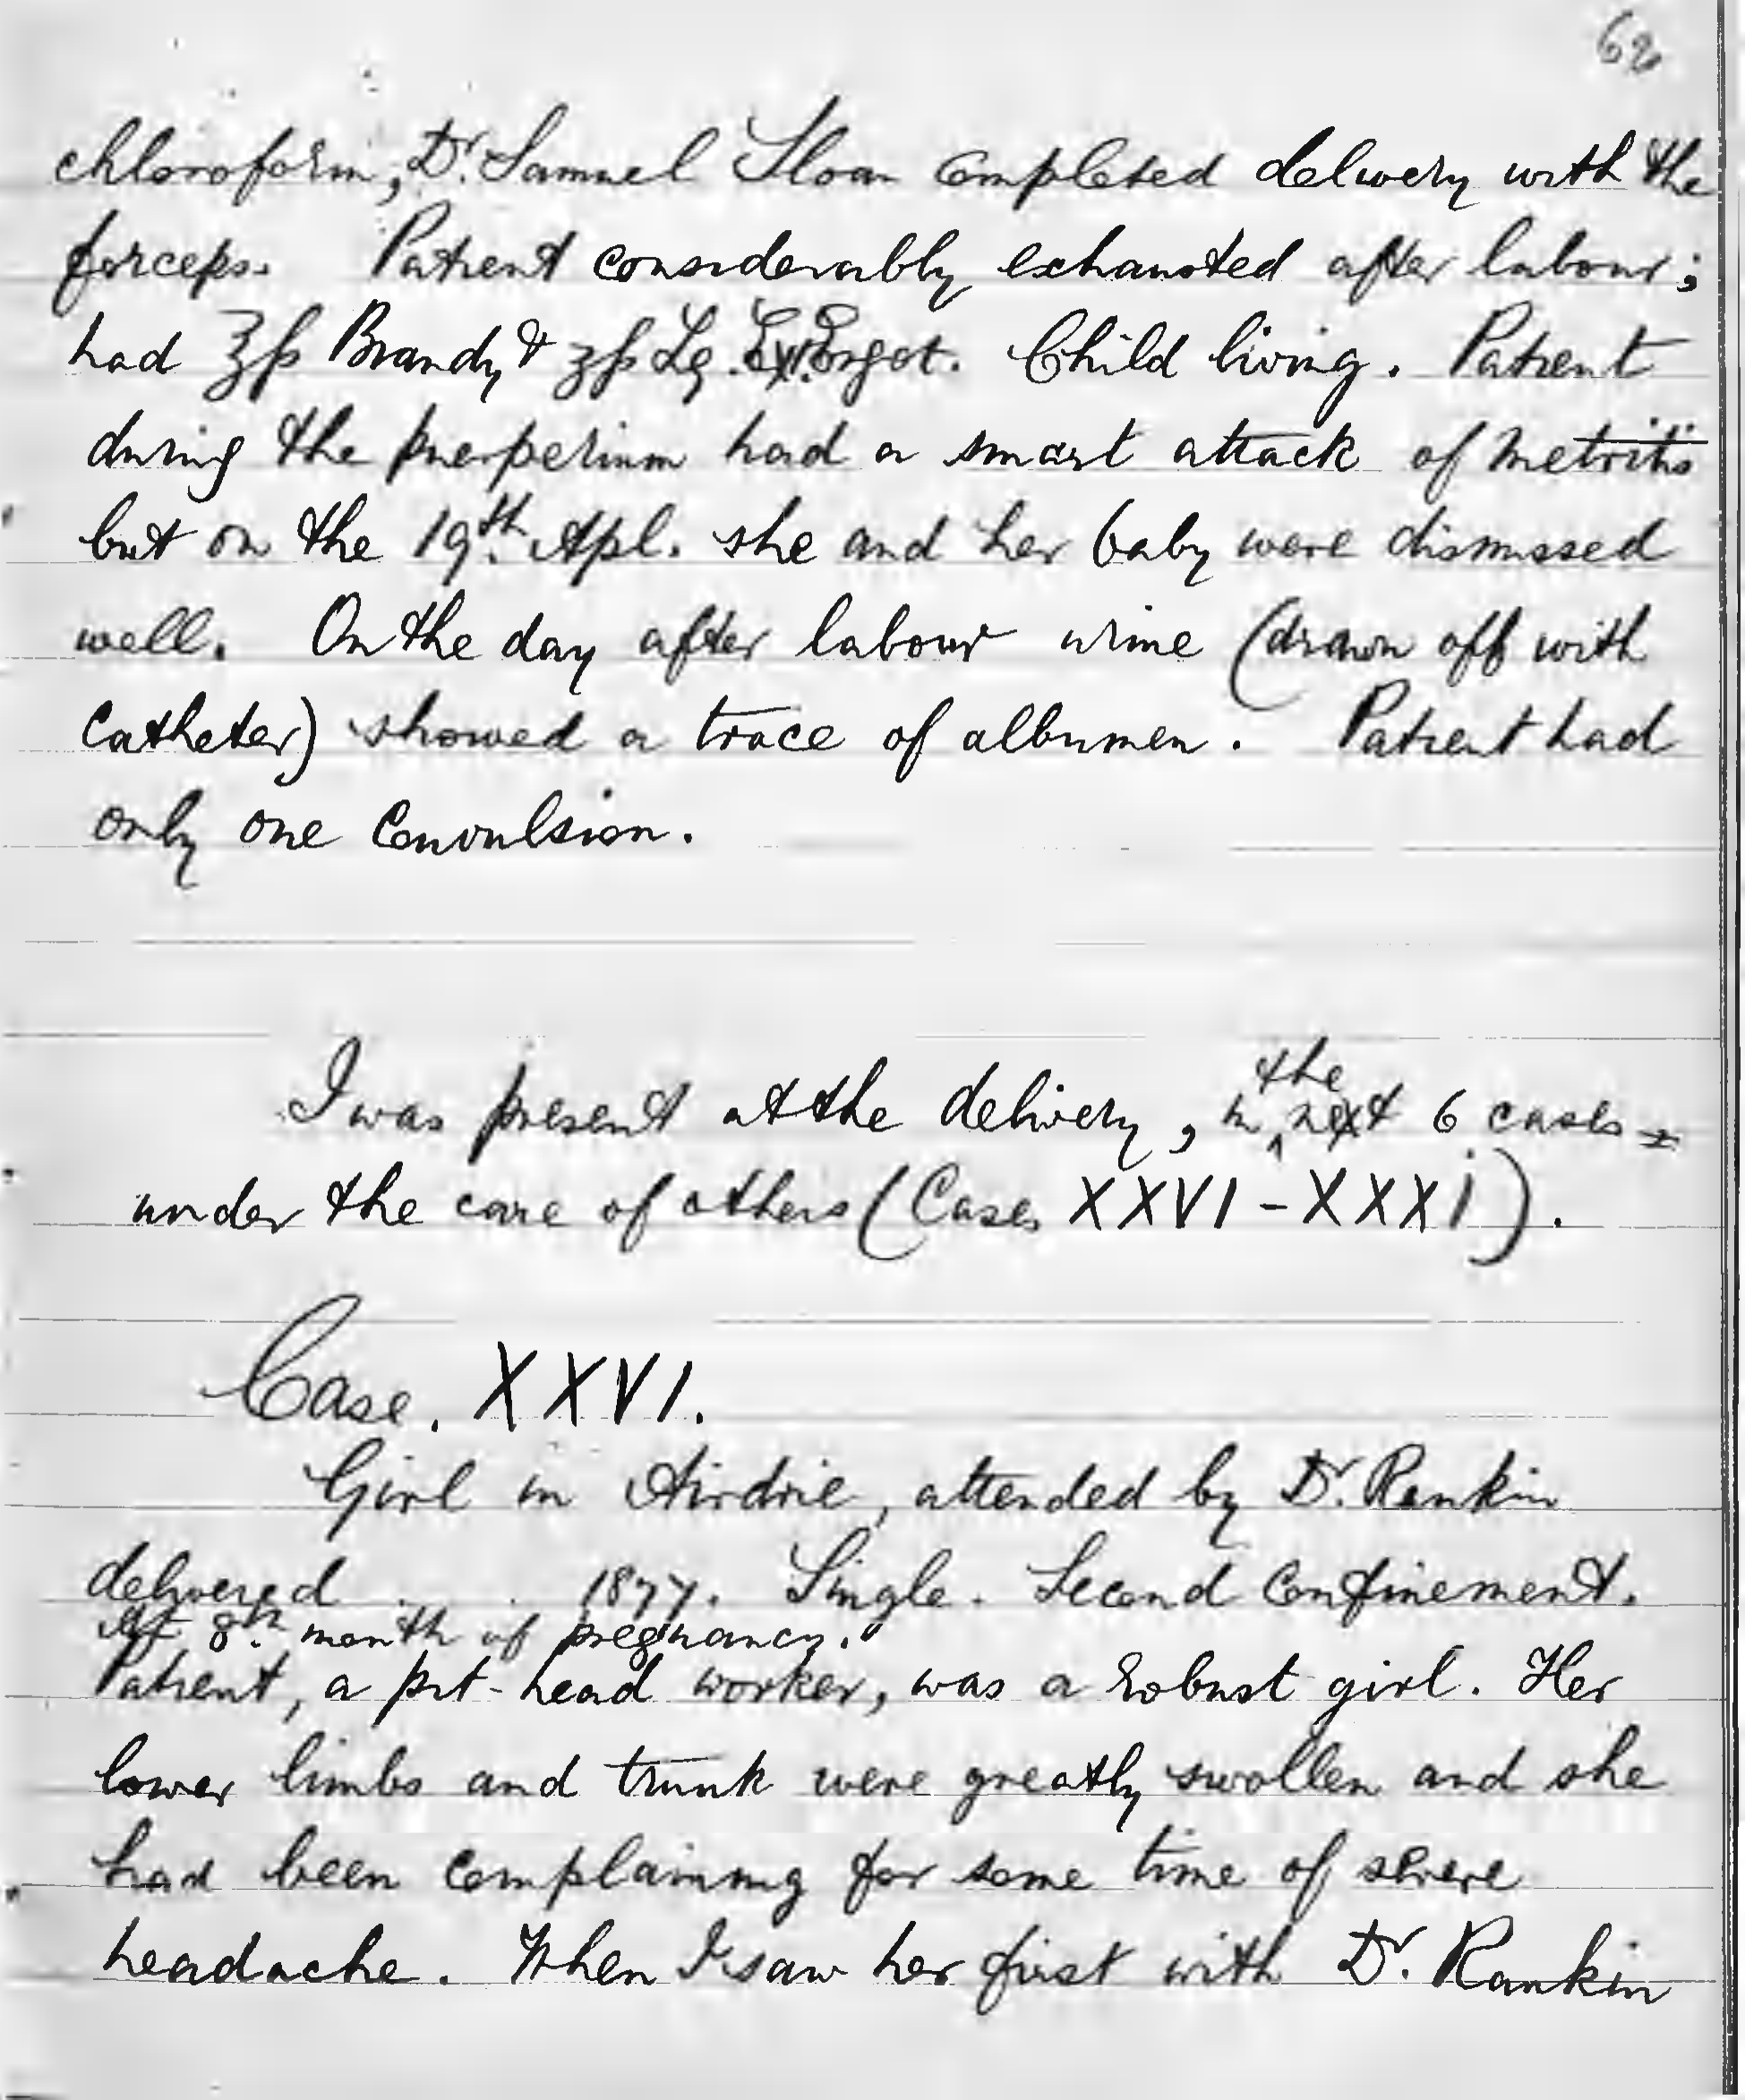 62
chloroform, Dr. Samuel Sloan completed delivery with the
forceps. Patient considerably exhausted after labour;
had ℥ß Brandy & ʒß Lq. Ext. Ergot. Child living. Patient
during the puerperium had a smart attack of metritis
but on the 19th. Apl. she and her baby were dismissed
well. On the day after labour urine (drawn off with
Catheter) showed a trace of albumen. Patient had
only one Convulsion.
I was present at the delivery, in the next 6 cases -
under the care of others (Cases XXVI - XXXI).
Case. XXVI.
Girl in Airdrie, attended by Dr. Rankin
delivered . . 1877. Single. Second Confinement.
At 8th. month of pregnancy.
Patient, a pit-head worker, was a robust girl. Her
lower limbs and trunk were greatly swollen and she
had been complaining for some time of severe
headache. When I saw her first with Dr. Rankin